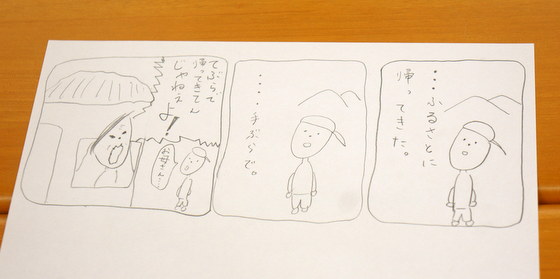 ・・・ふるさとに
帰ってきた。
・・・・手ぶらで。
てぶらで
帰ってきてん
じゃねえよ!